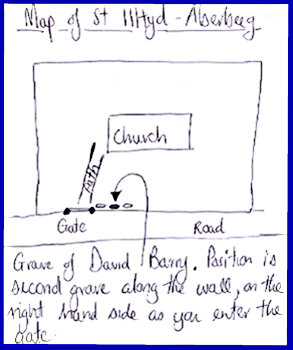 Map of St Illtyd - Aberbeeg
Church
Path
Gate
Road
Grave of David Barry. Position is
second grave along the wall, on the
right hand side as you enter the
gate.